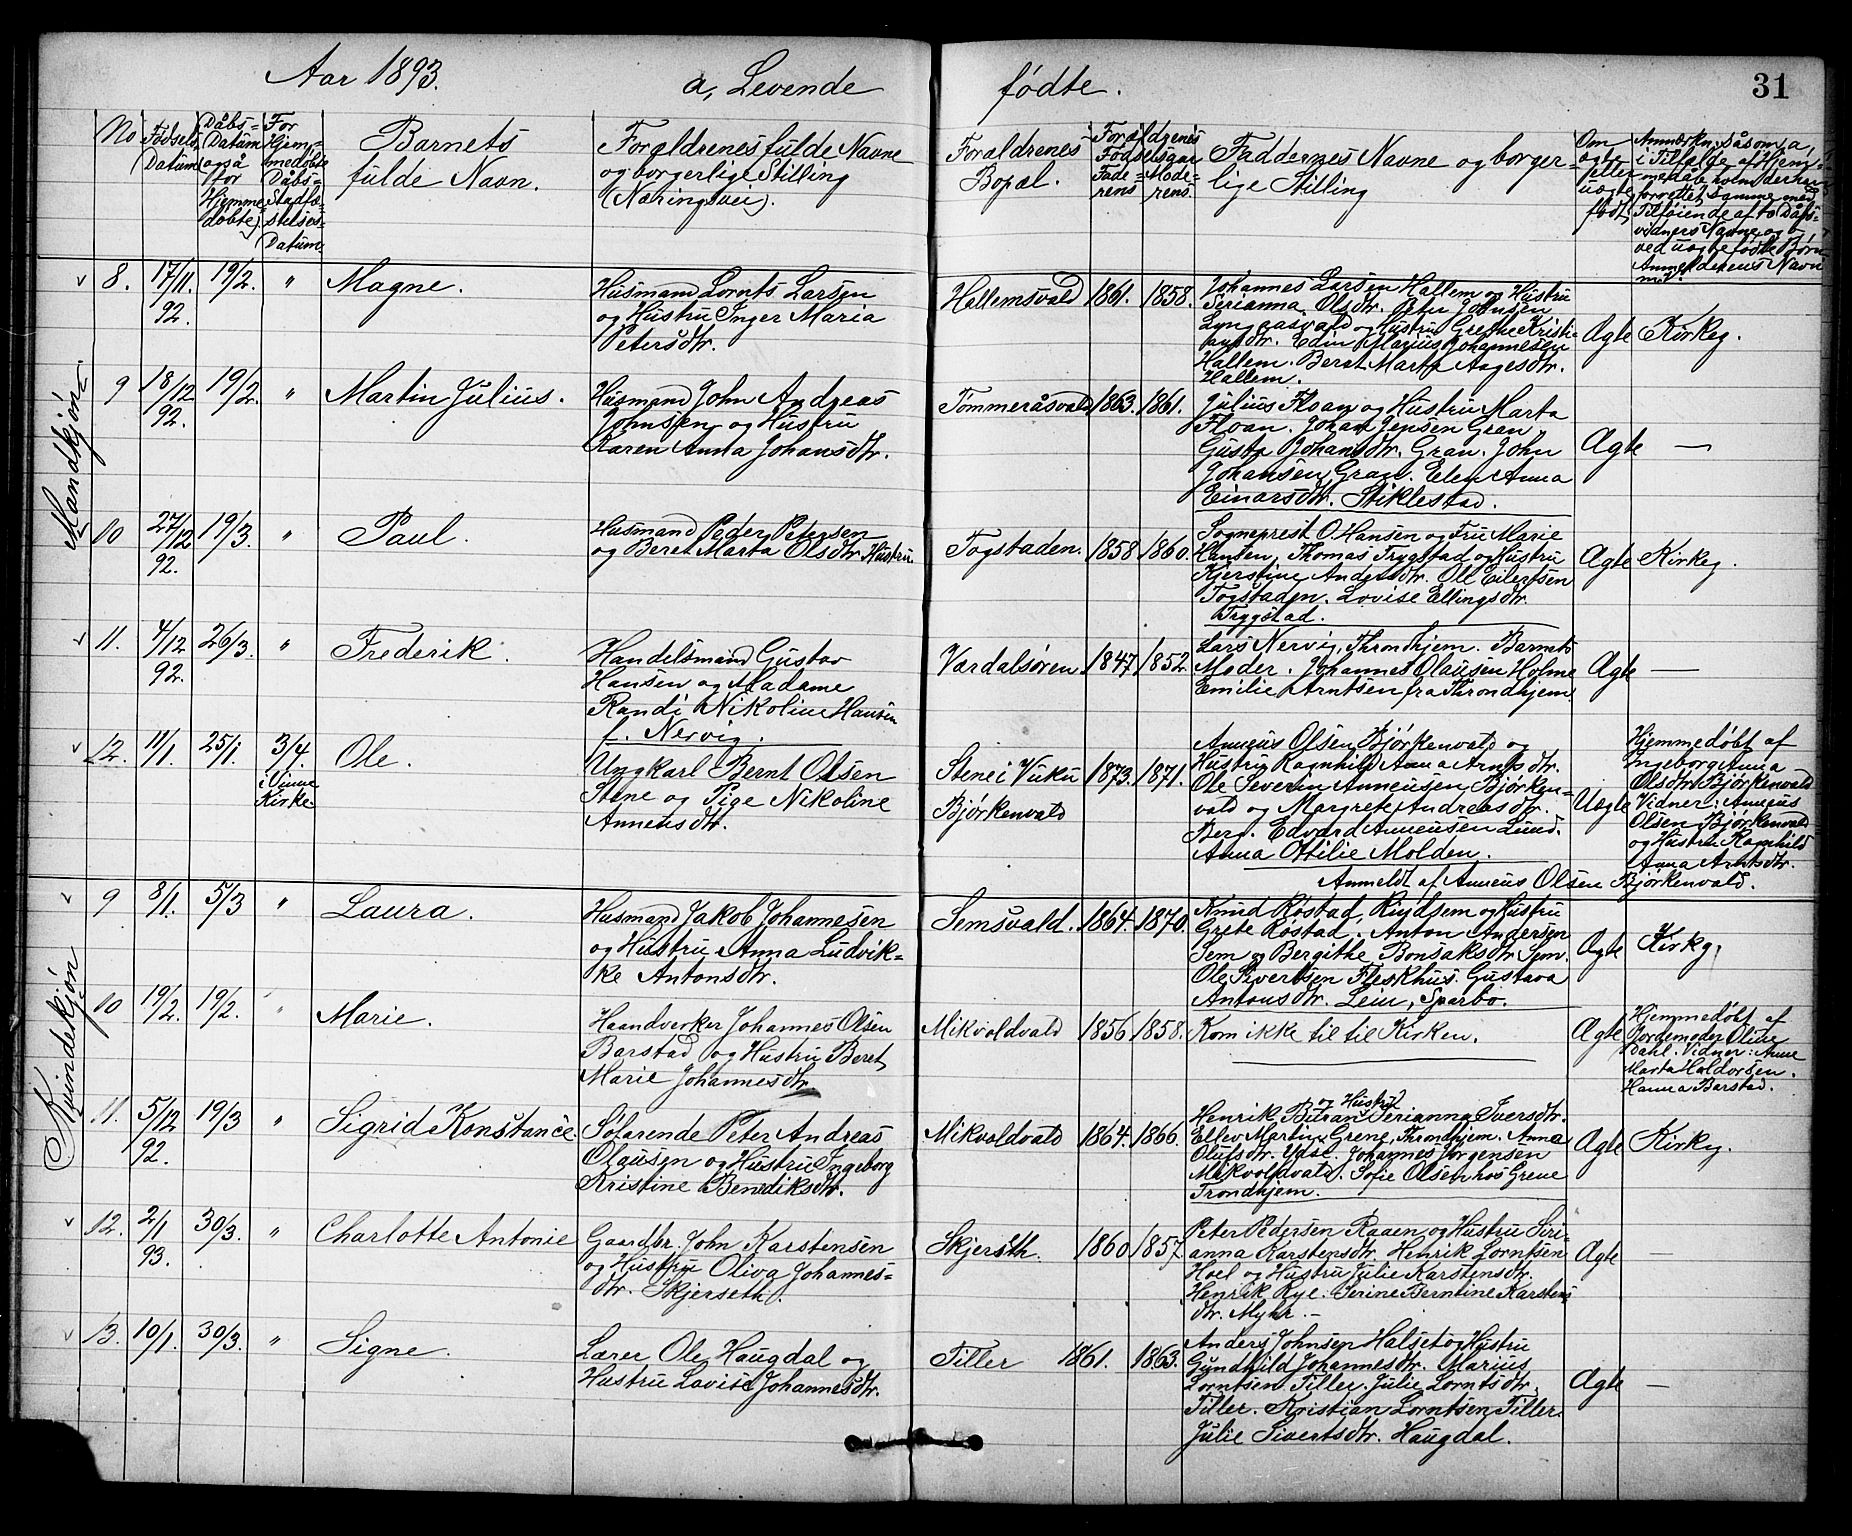 Aar 1893. a, Levende fødte. 31
No
Fødsels Datum
Dåbs= Datum også for Hjemme døbte
For Hjem= medøbte Dåbs= Stadfæ= stelses= Datum
Barnets fulde Navn.
Forældrenes fulde Navne og borgerlige Stilling (Næringsvei).
Forældrenes Bopæl.
Forældrenes Fødselsaar Fade= rens Mode= rens.
Faddernes Navne og borger= lige Stilling
Om ægte eller uægte født
Anmærkn. såsom a, i Tilfælde af Hjem= medåb, hvem der har forrettet Samme med Tilføiende af to Dåbs= vidners Navne og b ved uægte fødte Børn Anmelderens Navn m.v.
Mandkjøn
8. 17/11. 92. 19/2. " Magne.
Husmand Lornts Larsen
og Hustru Inger Maria
Petersdtr.
Hallemsvald 1861. 1858.
Johannes Larsen Hallem og Hustru
Serianna Olsdtr. Peter Johnsen
Lyngaasvald og Hustru Grethe Kristi=
ansdtr. Edin Marius Johannesen
Hallem. Beret Marta Aagesdtr.
Hallem.
Ægte Kirkeg.
9 18/12 92. 19/2. " Martin Julius.
Husmand John Andreas
Johnsen og Hustru
Karen Anna Johansdtr.
Tømmeråsvald 1863. 1861.
Julius Floan og Hustru Marta
Floan. Johan Jensen Gran
Gusta Johansdtr. Gran. John
Johansen Gran. Elen Anna
Einarsdtr. Stiklestad.
Ægte —
10 27/12 92. 19/3. " Paul.
Husmand Peder Petersen
og Beret Marta Olsdtr. Hustru
Togstaden. 1858 1860.
Sogneprest O Hansen og Fru Marie
Hansen, Thomas Trygstad og Hustru
Kjerstine Andersdtr. Ole Eilertsen
Togstaden. Lovise Ellingsdtr.
Trygstad.
Ægte Kirkeg.
11. 4/12 92. 26/3. " Frederik.
Handelsmand Gustav
Hansen og Madame
Randi Nikoline Hansen
f. Nervig.
Værdalsøren 1847. 1852.
Lars Nervig, Throndhjem. Barnets
Moder. Johannes Olausen Holme
Emilie Arntsen fra Throndhjem.
Ægte —
12. 11/1. 25/1. 3/4. i Vinne Kirke Ole.
Ungkarl Bernt Olsen
Stene og Pige Nikoline
Anneusdtr.
Stene i Vuku
Bjørkenvald
1873. 1871.
Anneus Olsen Bjørkenvald og
Hustru Ragnhild Anna Arntsdtr.
Ole Severin Anneusen Bjørken=
vald og Margrete Andreasdtr.
Berg. Edvard Anneusen Lund.
Anna Otilie Molden.
Uægte
Hjemmedøbt af
Ingeborg Anna
Olsdtr. Bjørkenvald
Vidner: Anneus
Olsen Bjørkenvald
og Hustru Ragnhild
Anna Arntsdtr.
Anmeldt af Anneus Olsen Bjørkenvald.
Kvindekjøn
9 8/1. 5/3 " Laura.
Husmand Jakob Johannesen
og Hustru Anna Ludvik=
ke Antonsdtr.
Semsvald. 1864. 1870.
Knud Røstad, Rindsem og Hustru
Grete Røstad. Anton Andersen
Sem og Bergithe Bonsaksdtr. Sem.
Ole Sivertsen Fleskhus. Gustava
Antonsdtr. Lein, Sparbo.
Ægte Kirkg.
10 19/2. 19/2. " Marie.
Haandverker Johannes Olsen
Barstad og Hustru Beret
Marie Johannesdtr.
Mikvoldvald 1856 1858.
Kom ikke til til Kirken.
Ægte
Hjemmedøbt af
Jordemoder Oline
Dahl. Vidner: Anne
Marta Haldorsen.
Hanna Barstad.
11. 5/12 92. 19/3 " Sigrid Konstance
Selvarende Peter Andreas
Olausen og Hustru Ingeborg
Kristine Benediksdtr.
Mikvoldvald 1864. 1866.
og Hustru
Henrik Bitran Serianna Iversdtr.
Ellev Martin Grene, Throndhjem. Anna
Olufsdtr. Ydse. Johannes Jørgensen
Mikvoldvald. Sofie Olsen hos Grene
Trondhjem.
Ægte Kirkg.
12. 2/1 93. 30/3. " Charlotte Antonie
Gaardbr. John Karstensen
og Hustru Oliva Johannes=
dtr. Skjerseth.
Skjerseth. 1860 1857.
Peter Pedersen Raaen og Hustru Seri=
anna Karstensdtr. Henrik Lorntsen
Hoel og Hustru Julie Karstensdtr.
Henrik Rye. Serine Berntine Karstens
dtr. Myhr. —
Ægte —
13. 10/1. 30/3. " Signe.
Lærer Ole Haugdal og
Hustru Lovise Johannesdtr.
Tiller 1861. 1863.
Anders Johnsen Halset og Hustru
Gundhild Johannesdtr. Marius
Lorntsen Tiller. Julie Lorntsdtr.
Tiller. Kristian Lorntsen Tiller.
Julie Sivertsdtr. Haugdal.
Ægte —